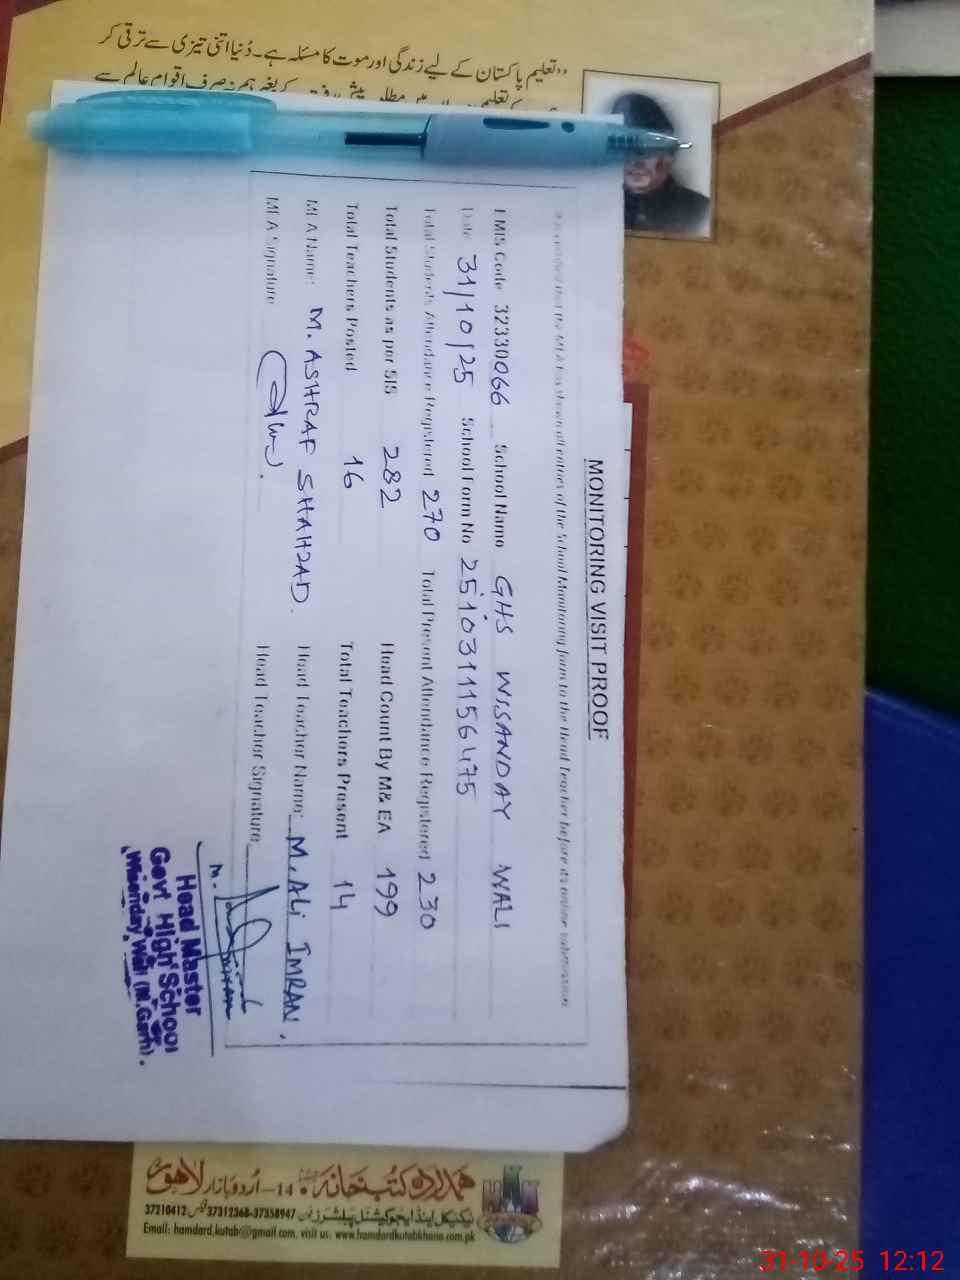 ”تعلیم پاکستان کے لیے زندگی اور موت کا مسئلہ ہے۔ دُنیا اتنی تیزی سے ترقی کر
MONITORING VISIT PROOF
It is certified that the MEA has shown all entries of the School Monitoring form to the Head Teacher before its online submission
EMIS Code 32330066 School Name GHS WISANDAY WALI
Date 31/10/25 School Form No 2510311156475
Total Students Attendance Registered 270 Total Present Attendance Registered 230
Total Students as per SIS 282 Head Count By M& EA 199
Total Teachers Posted 16 Total Teachers Present 14
MEA Name: M. ASHRAF SHAHZAD. Head Teacher Name: M. Ali IMRAN.
MEA Signature Head Teacher Signature
Head Master
Govt High School
Wisanday Wali (M.Garh).
ہمدرد کتب خانہ 14-اُردو بازار لاہور
ٹیکنیکل اینڈ ایجوکیشنل پبلشرز فون 37312368-37358947 فیکس 37210412
Email: hamdard.kutab@gmail.com, visit us: www.hamdardkutabkhana.com.pk
31-10-25 12:12